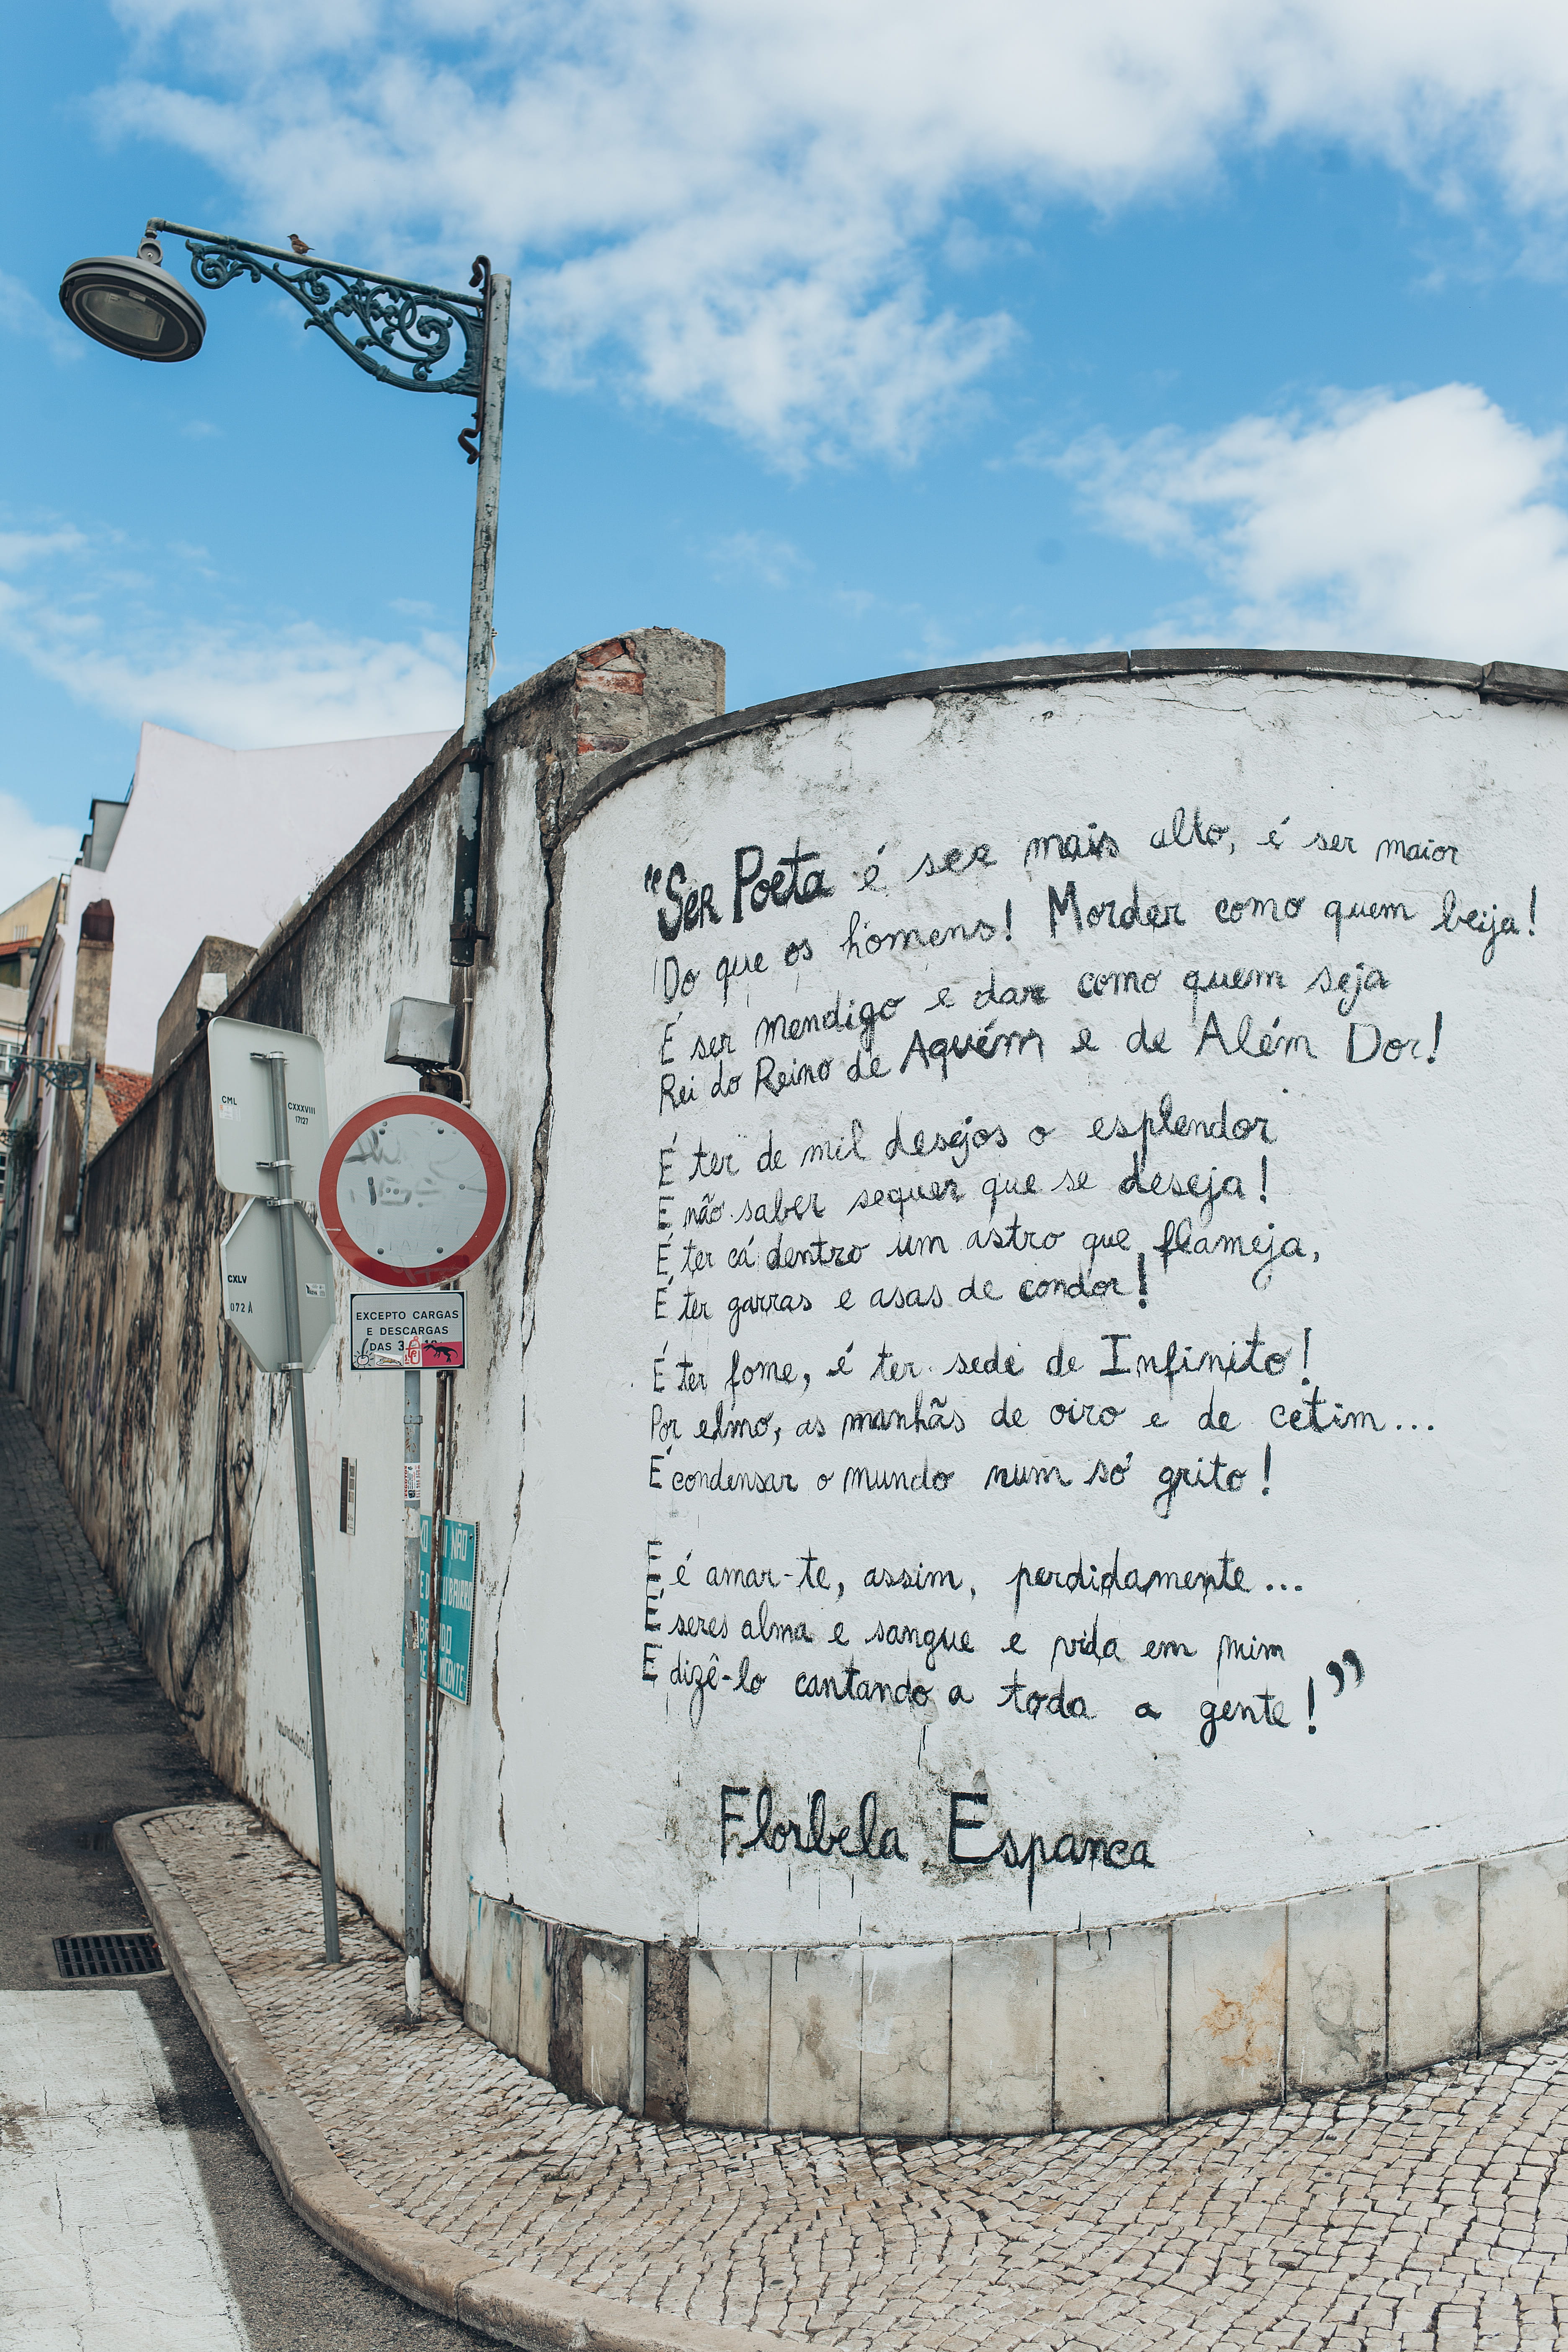 "Ser Poeta é ser mais alto, é ser maior
Do que os homens! Morder como quem beija!
É ser mendigo e dar como quem seja
Rei do Reino de Aquém e de Além Dor!
É ter de mil desejos o esplendor
E não saber sequer que se deseja!
É ter cá dentro um astro que flameja,
É ter garras e asas de condor!
É ter fome, é ter sede de Infinito!
Por elmo, as manhãs de oiro e de cetim...
É condensar o mundo num só grito!
E é amar-te, assim, perdidamente...
É seres alma e sangue e vida em mim
E dizê-lo cantando a toda a gente!"
Florbela Espanca
CML
CXXXVIII
17127
CXLV
072 A
EXCEPTO CARGAS
E DESCARGAS
DAS
NÃO